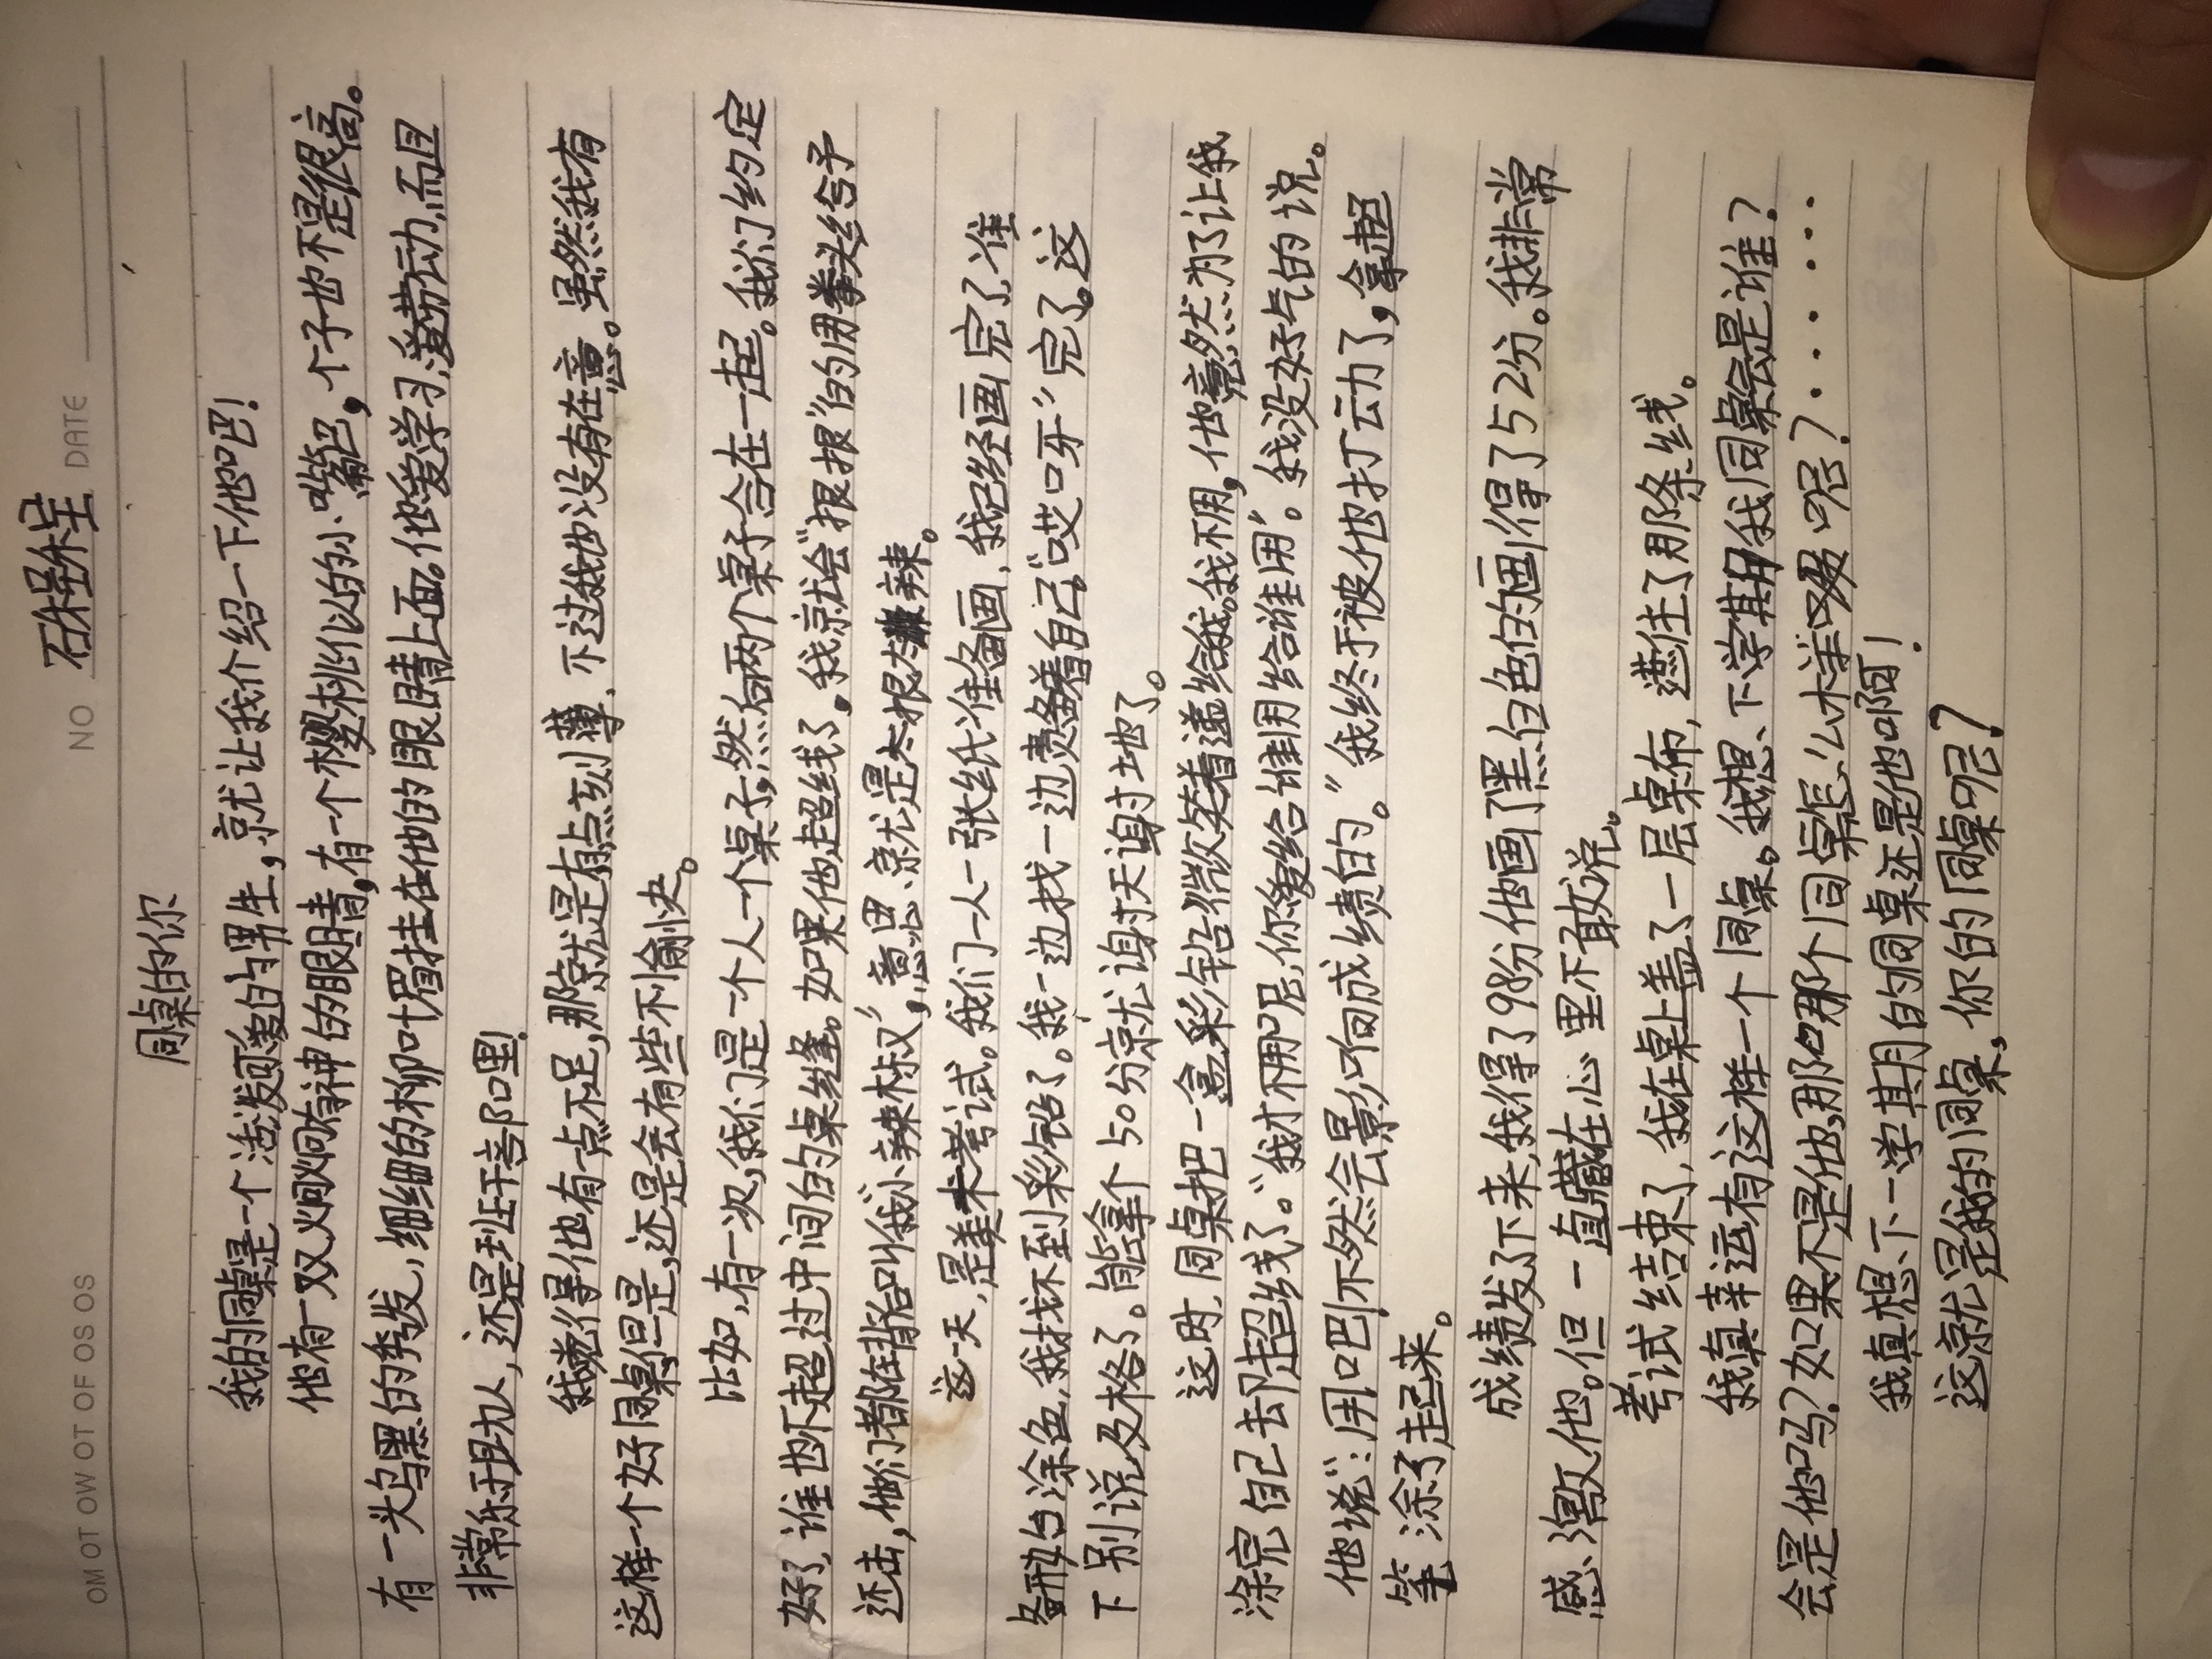 NO
DATE
MO TU WE TH FR SA SU
同桌的你
我的同桌是一个活泼可爱的男生，就让我介绍一下他吧！
他有一双炯炯有神的眼睛，有一个樱桃似的小嘴巴，个子也不是很高。
有一头乌黑的秀发，细细的柳叶眉挂在他的眼睛上面。他爱学习，爱劳动，而且
非常乐于助人，还是班干部哩！
我觉得他有一点不足，那就是有点刻薄，不过我也没有在意。虽然我有
这样一个好同桌，但是，还是会有些不愉快。
比如，有一次，我们是一个人一个桌子，然后两个桌子合在一起。我们约定
好了，谁也不超过中间的桌缝。如果他超线了，我就会“狠狠”的用拳头给予
还击，他们都在背后叫我“小辣椒”，意思就是太狠太辣。
这一天，是美术考试。我们一人一张纸准备画，我已经画完了，准
备开始涂色，我找不到彩铅了。我一边找一边责备着自己“哎呀”完了。这
下别说及格了。能拿个50分就谢天谢地了。
这时，同桌把一盒彩铅微笑着递给我。我不用，他竟然为了让我
涂完自己去却超线了。“我才不用呢，你爱给谁用给谁用”。我没好气的说。
他说：“用吧！不然会影响成绩的。”我终于被他打动了，拿起
笔涂了起来。
成绩发下来，我得了98分他画了黑白色的画得了52分。我非常
感激他。但一直藏在心里不敢说。
考试结束了，我在桌上盖了一层桌布，遮住了那条线。
我真幸运有这样一个同桌。我想、下学期我同桌会是谁？
会是他吗？如果不是他，那那个同桌怎么样呢？……
我真想、下一学期的同桌还是他啊！
这就是我的同桌，你的同桌呢？